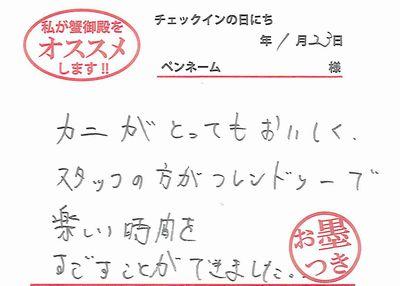 私が蟹御殿を
オススメ
します!!
チェックインの日にち
年 1月23日
ペンネーム 様
カニがとってもおいしく、
スタッフの方がフレンドリーで
楽しい時間を
すごすことができました。
お墨
つき